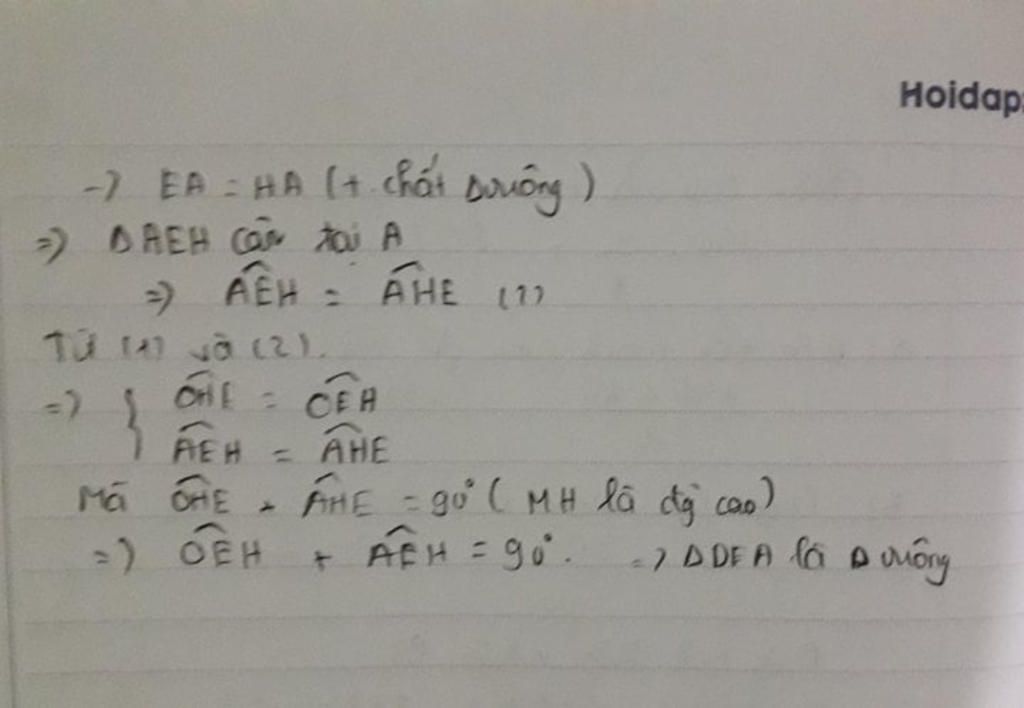 Hoidap
-) EA = HA (t chất Δ vuông)
=) Δ AEH cân tại A
=) ÂEH = ÂHE (1)
Từ (1) và (2).
=) { ÔHE = ÔEH
ÂEH = ÂHE
Mà ÔHE + ÂHE = 90° ( MH là đg cao)
=) ÔEH + ÂEH = 90°. =) Δ DEA là Δ vuông